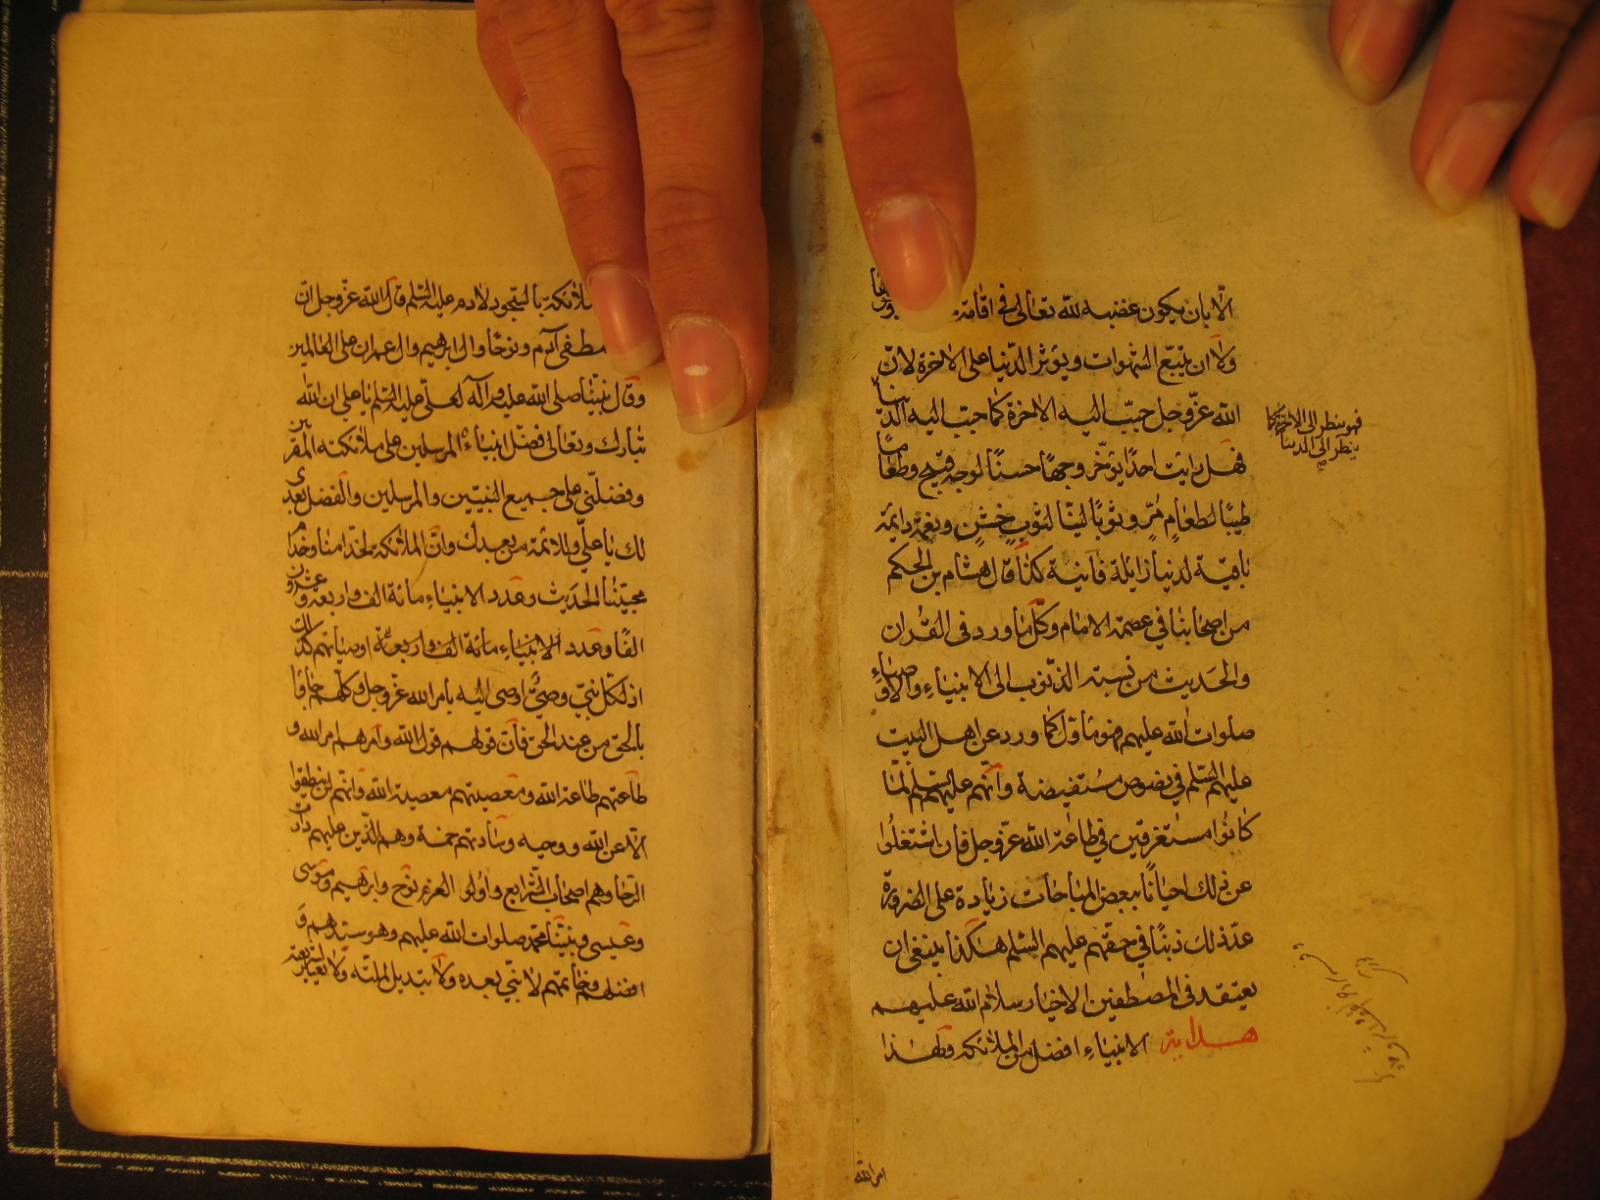 الا بان يكون غضبه لله تعالى في اقامة
ولا ان يتبع الشهوات ويؤثر الدنيا على الاخرة لانّ
الله عزّ وجل حبّب اليه الاخرة كما حبّب اليه الدنيا
فهو ينظر الى الاخرة كما
ينظر الى الدنيا
فهل رايت احدًا يؤخّر وجهًا حسنًا لوجه قبيح وطعامًا
طيبًا لطعامٍ مُرّ وثوبًا ليّنًا لثوبٍ خشنٍ ونعمة دايمة
باقية لدنيا زايلة فانية كذا قال هشام بن الحكم
من اصحابنا في عصمة الامام وكلّ ما ورد في القران
والحديث من نسبة الذنوب الى الانبياء والاوصياء
صلوات الله عليهم فهو ماوّل كما ورد عن اهل البيت
عليهم السّلم في نصوص مستفيضة وانّهم عليهم السلم لمّا
كانوا مستغرقين في طاعة الله عزّ وجل فان اشتغلوا
عن ذلك احيانًا ببعض المباحات زيادة على الضرورة
عدّ ذلك ذنبًا في حقّهم عليهم السلم هكذا ينبغى ان
يعتقد فى المصطفين الاخيار سلام الله عليهم
هداية الانبياء افضل من الملائكة ولهذا
امر الله
ملائكته بالسّجود لادم عليه السّلم قال الله عزّ وجل انّ
اصطفى آدم ونوحًا وال ابرهيم وال عمران على العالمين
وقال نبيّنا صلى الله عليه وآله لعلىّ عليه السّلم يا على ان الله
تبارك وتعالى فضّل انبياءه المرسلين على ملائكته المقرّبين
وفضلنّى على جميع النبيّين والمرسلين والفضل بعدى
لك يا علىّ وللائمة من بعدك وانّ الملائكة لخدّامنا وخدّام
محبّينا الحديث وعدد الانبياء مائة الف واربعة وعشرون
الفًا وعدد الاوصياء مائة الف واربعة اوصياتهم كذلك
اذ لكلّ نبىّ وصىٌّ اوصى اليه بامر الله عزّ وجل وكلّهم جاؤا
بالحق من عند الحق فانّ قولهم قول الله وامرهم امر الله و
طاعتهم طاعة الله ومعصيتهم معصية الله وانّهم لن ينطقوا
الاّ عن الله ووحيه وسادتهم خمسة وهم الّذين عليهم دارت
الرّحا وهم اصحاب الشّرايع واولو العزم نوح وابرهيم وموسى
وعيسى ونبيّنا محمد صلوات الله عليهم وهو سيّدهم و
افضلهم وخاتمهم لا نبىّ بعده ولا تبديل لملّته ولا تغيير لشريعته